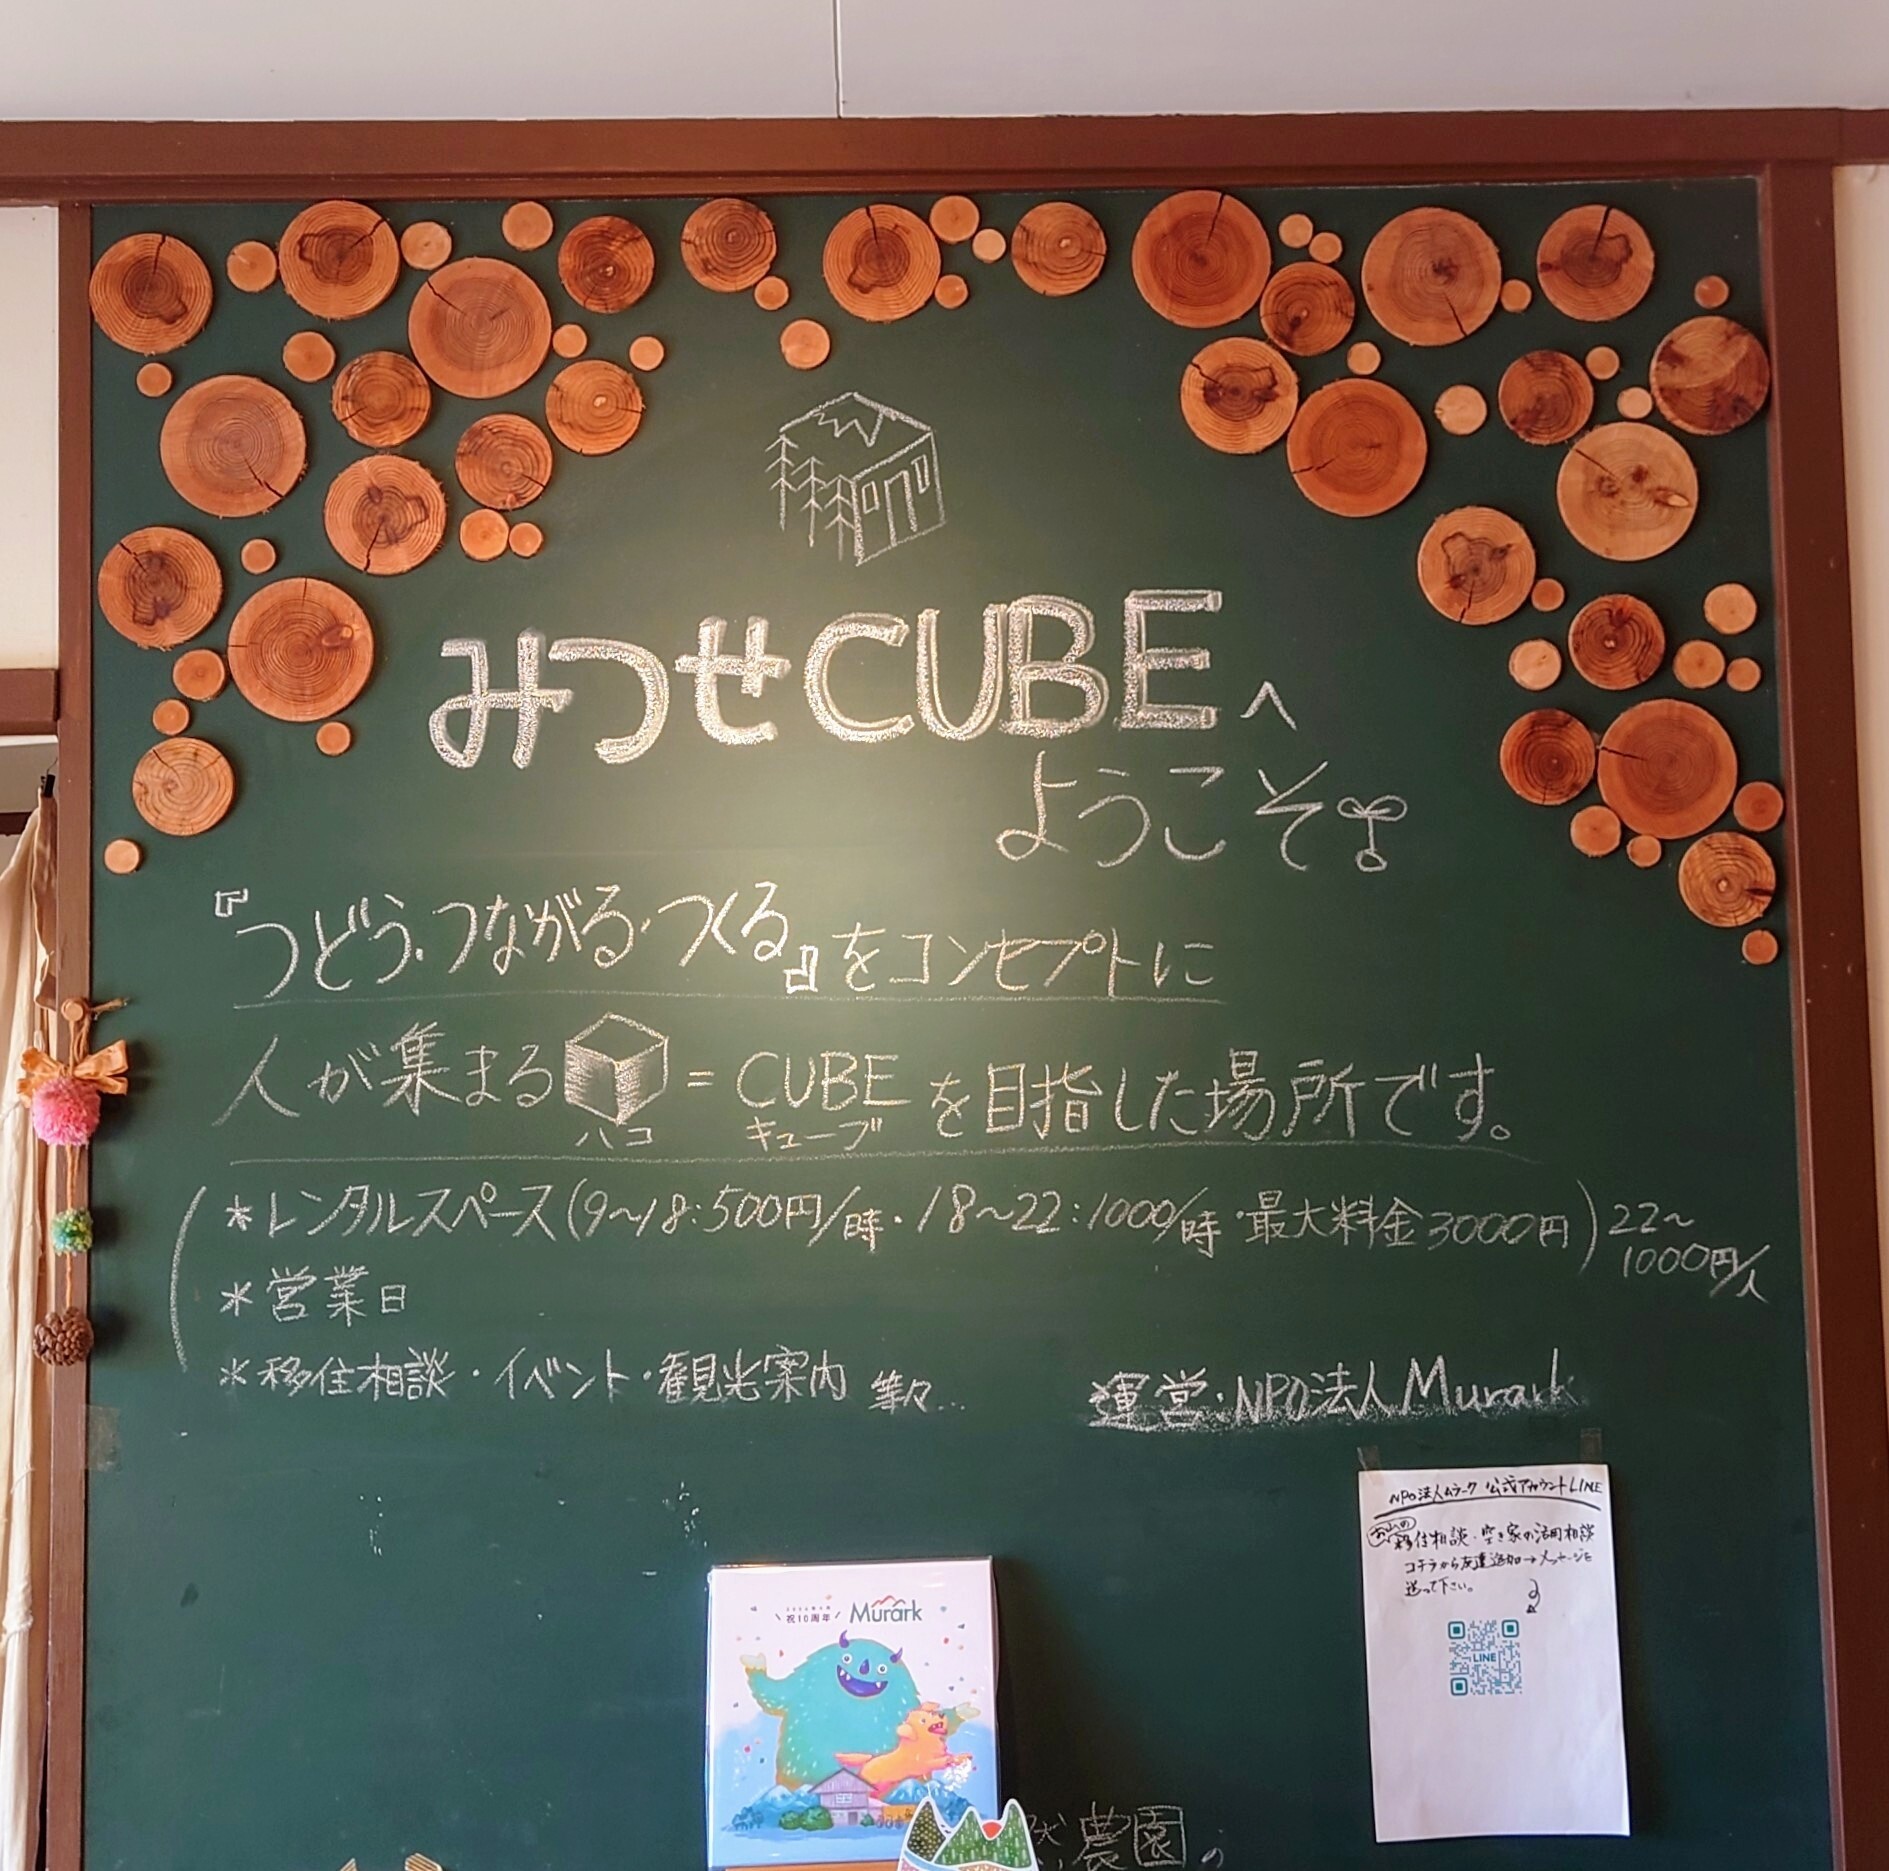 みつせCUBEへ
ようこそ
『つどう・つながる・つくる』をコンセプトに
人が集まる = CUBE を目指した場所です。
ハコ キューブ
*レンタルスペース(9~18:500円/時・18~22:1000/時・最大料金3000円) 22~
1000円/人
*営業日
*移住相談・イベント・観光案内 等々...
運営・NPO法人Murark
NPO法人ムラーク 公式アカウントLINE
お山の
移住相談・空き家の活用相談
コチラから友達追加→メッセージを
送って下さい。
LINE
祝10周年
Murark
農園の